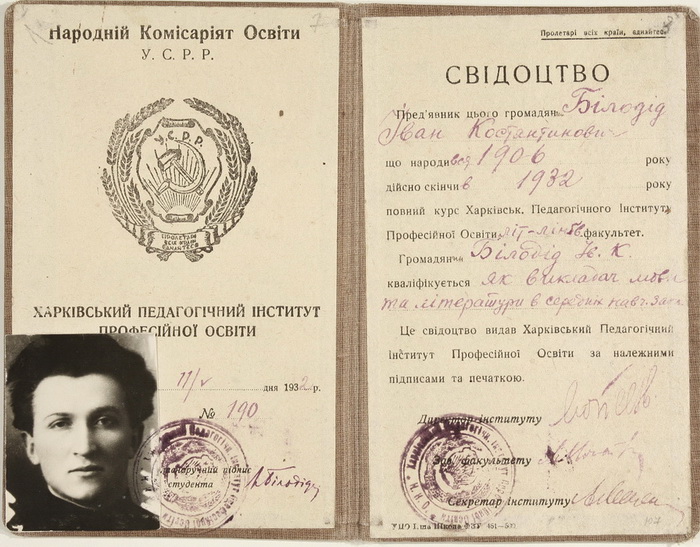 Народній Комісаріят Освіти
У. С. Р. Р.
У.С.Р.Р.
ПРОЛЕТАРІ
ВСІХ КРАЇН
ЄДНАЙТЕСЯ
ХАРКІВСЬКИЙ ПЕДАГОГІЧНИЙ ІНСТИТУТ
ПРОФЕСІЙНОЇ ОСВІТИ
11/V дня 1932 р.
№ 190
підпис
студента І. Білодід
Пролетарі всіх країн, єднайтеся
СВІДОЦТВО
Пред'явник цього громадян Білодід
Іван Костантинович
що народився 1906 року
дійсно скінчив 1932 року
повний курс Харківськ. Педагогічного Інституту
Професійної Освіти, літ-лінгв. факультет.
Громадянин Білодід І. К.
кваліфікується як викладач мови
та літератури в середніх навч. закл.
Це свідоцтво видав Харківський Педагогічний
інститут Професійної Освіти за належними
підписами та печаткою.
Директор інституту
Зав. факультету
Секретар Інституту